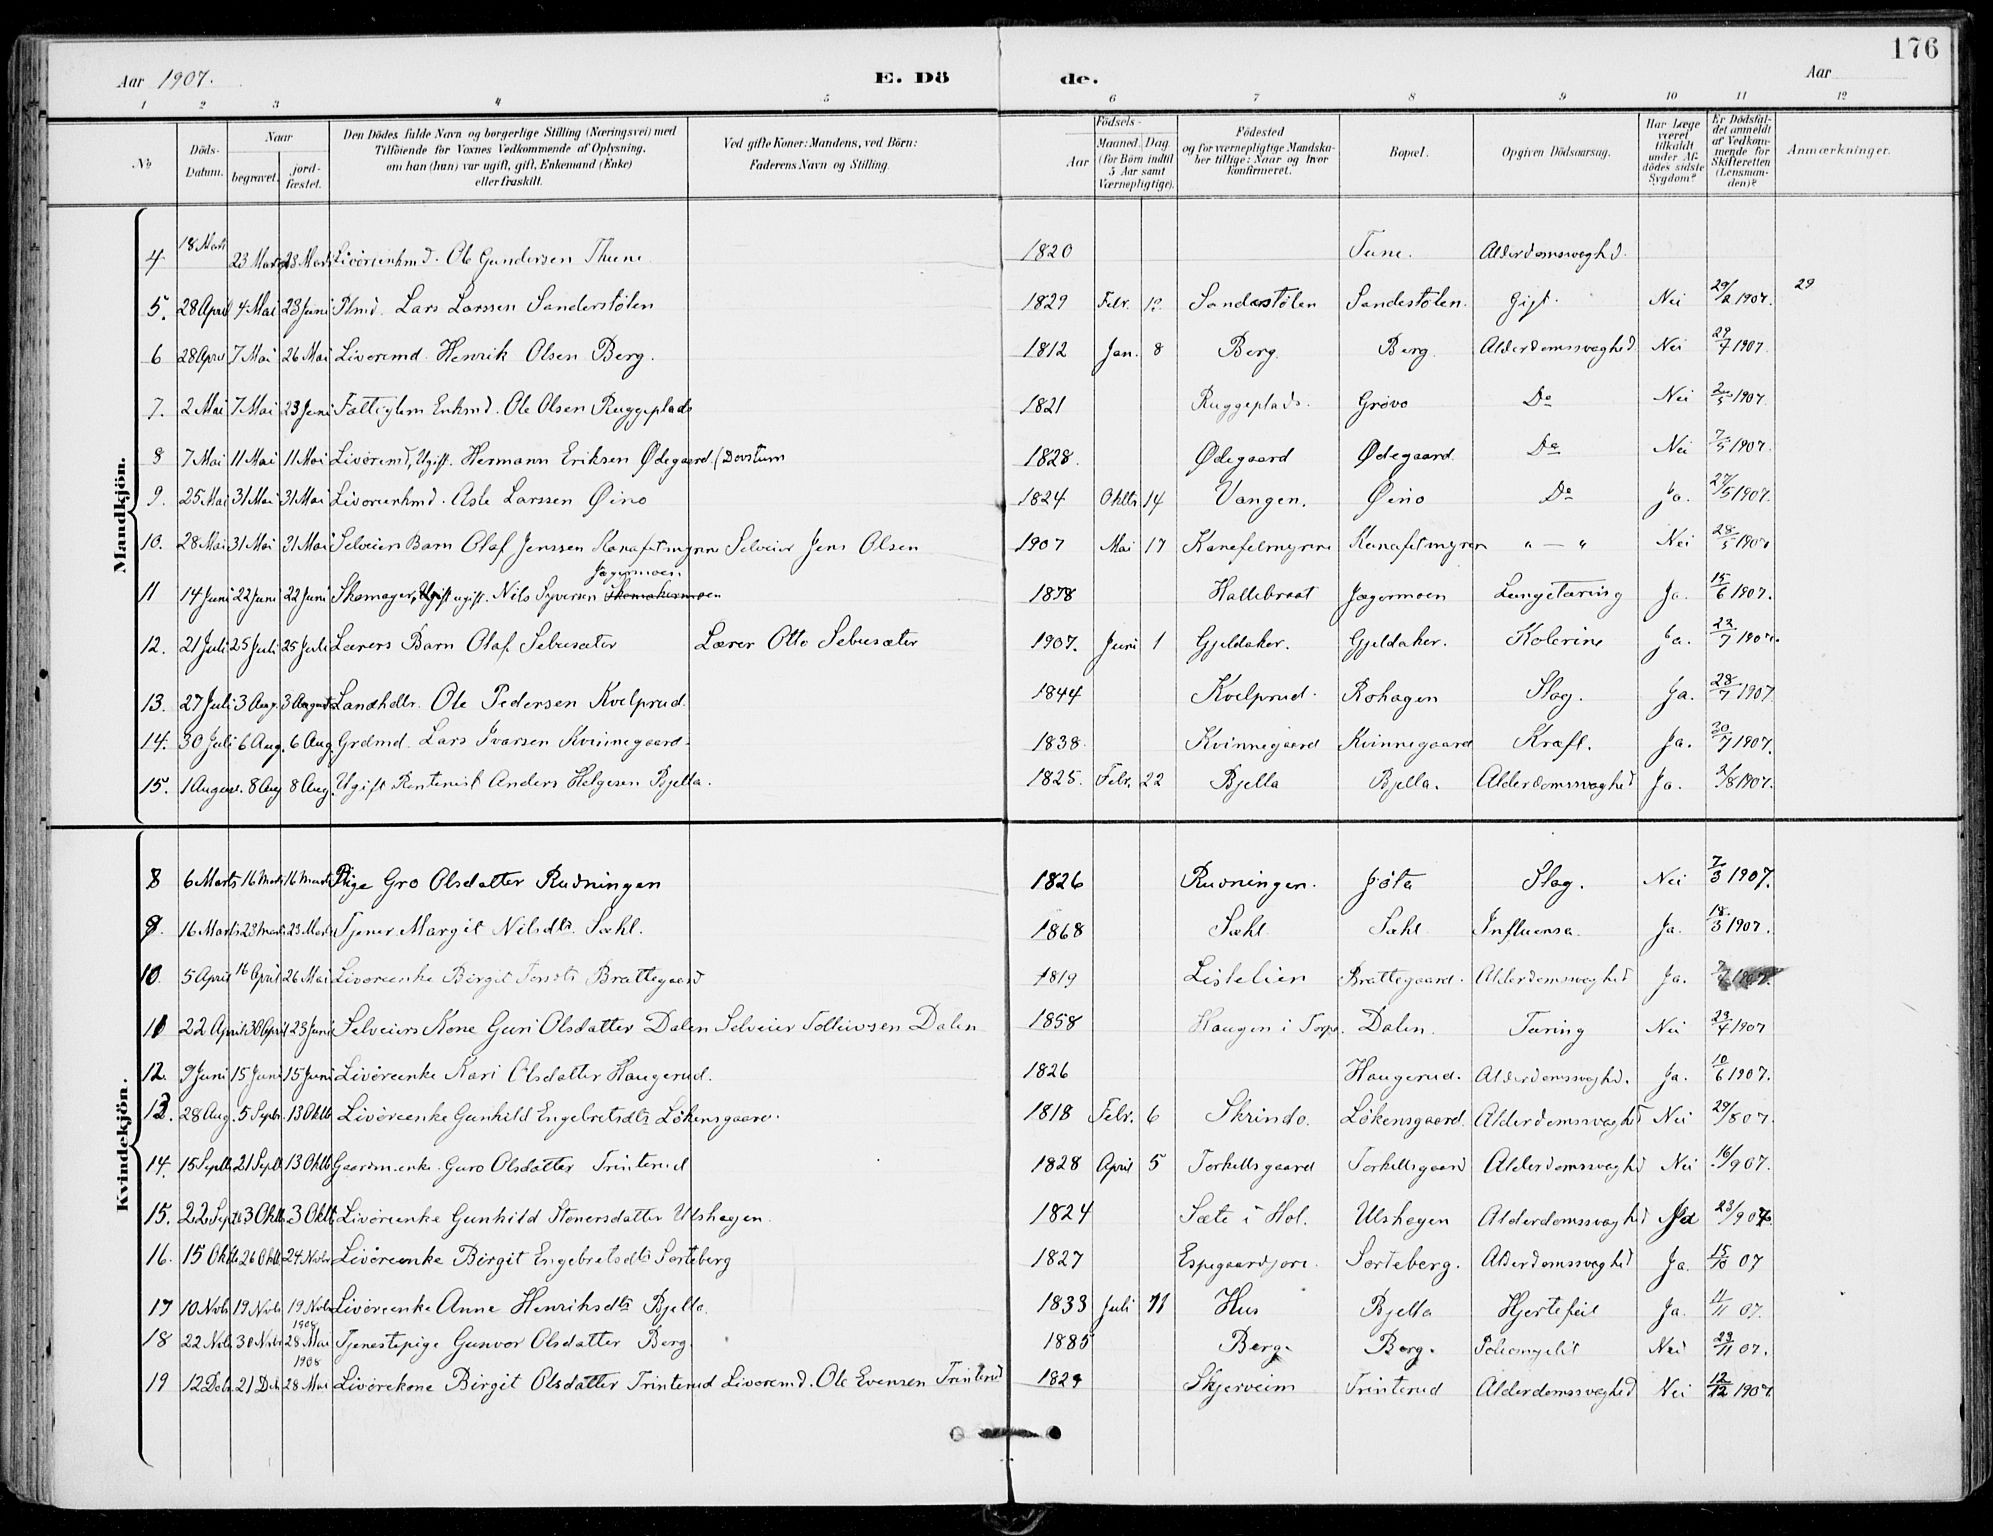 176
Aar 1907. E. Dö de. Aar
1 2 3 4 5 6 7 8 9 10 11 12
No
Döds-Datum.
Naar
begravet.
jordfæstet.
Den Dödes fulde Navn og borgerlige Stilling (Næringsvei) med Tilföiende for Voxnes Vedkommende af Oplysning, om han (hun) var ugift, gift, Enkemand (Enke) eller fraskilt.
Ved gifte Koner: Mandens, ved Börn: Faderens Navn og Stilling.
Födsels-
Aar
Maaned. Dag.
(for Börn indtil 5 Aar samt Værnepligtige).
Födested og for værnepligtige Mandskaber tillige: Naar og hvor konfirmeret.
Bopæl.
Opgiven Dödsaarsag.
Har Læge været tilkaldt under Afdödes sidste Sygdom?
Er Dödsfaldet anmeldt af Vedkommende for Skifteretten (Lensmanden)?
Anmærkninger.
Mandkjön.
4. 18 Marts 23 Marts 23 Marts Livöreenkmd. Ole Gundersen Thune 1820 Tune. Alderdomssvaghd.
5. 28 April 4 Mai 23 Juni Plmd. Lars Larssen Sanderstölen 1829 Febr. 12 Sandestölen Sandestölen. Gigt. Nei 1907. 29
6 28 April 7 Mai 26 Mai Livöremd. Henrik Olsen Berg. 1812 Jan. 8 Berg. Berg. Alderdomssvaghed Nei 29/4 1907.
7. 2 Mai 7 Mai 23 Juni Fattiglem Enkmd. Ole Olsen Ruggeplads 1821 Ruggeplads. Grövo Do Nei 2/5 1907.
8 7 Mai 11 Mai 11 Mai Livöremd, Ugift. Hermann Eriksen Ødegaard. (Døvstum 1828. Ødegaard Ødegaard. Do Nei 7/5 1907.
9. 25 Mai 31 Mai 31 Mai Livöreenkmd. Asle Larssen Øino 1824 Oktbr 14 Vangen. Øino Do Ja. 27/5 1907.
10. 28 Mai 31 Mai 31 Mai Selveiers Barn Olaf Jenssen Kanafetmyren Selveier Jens Olsen 1907 Mai 17 Kanefetmyren Kanafetmyren " — " Nei 28/5 1907
Jegermoen.
11 14 Juni 22 Juni 22 Juni Skomager, ugift. Nils Syversen Skomakermoen 1878 Hallebraat Jægermoen Lungetæring Ja. 15/6 1907.
12. 21 Juli 25 Juli 25 Juli Lærers Barn Olaf Sebusæter Lærer Otto Sebusæter 1907. Juni 1 Gjeldaker. Gjeldaker. Kolerine Ja. 23/7 1907.
13. 27 Juli 3 Aug. 3 August Landhdlr. Ole Pedersen Kvelprud. 1844 Kvelprud. Rohagen Slag. Ja. 28/7 1907
14. 30 Juli 6 Aug. 6 Aug. Grdmd. Lars Ivarsen Kvinnegaard. 1838. Kvinnegaard Kvinnegaard Kræft. Ja. 30/7 1907.
15. 1 August. 8 Aug 8 Aug. Ugift Rentenist Anders Helgesen Bjella. 1825. Febr. 22 Bjella Bjella. Alderdomssvaghed Ja. 2/8 1907.
Kvindekjön.
8 6 Marts 16 Marts 16 Marts Pige Gro Olsdatter Rudningen 1826 Rudningen. Jöta Slag. Nei 7/3 1907.
9. 16 Marts 23 Marts 23 Marts Tjener Margit Nilsdtr. Sæhl. 1868 Sæhl Sæhl Influensa. Ja. 18/3 1907.
10. 5 April 16 April 26 Mai Livöreenke Birgit Brattegaard 1819 Listelien Brattegaard. Alderdomssvaghed Ja. 1907.
11 22 April 30 April 23 Juni Selveiers Kone Guri Olsdatter Dalen Selveier Dalen 1858 Haugen i Torpo. Dalen. Tæring Nei 23/4 1907
12. 9 Juni 15 Juni 15 Juni Livöreenke Kari Olsdatter Haugerud. 1826 Haugerud. Alderdomssvaghd. Ja. 10/6 1907.
13. 28 Aug. 5 Septr. 13 Oktb Livöreenke Gunhild Engebretsdtr Lökensgaard. 1818 Febr. 6 Skrindo. Lökensgaard. Alderdomssvaghed Nei 29/8 07.
14. 15 Septb 21 Septb 13 Oktb Gaardmenke. Guro Olsdatter Trinterud 1828 April 5 Torkellsgaard Torkellsgaard Alderdomssvaghed Nei 16/9 07.
15. 22 Septb 3 Oktb. 3 Oktb Livöreenke Gunhild Stenersdatter Ulshagen. 1824 Sæte i Hol. Ulshagen Alderdomssvaghed 23/9 07.
16. 15 Oktb 26 Oktb. 24 Novbr Livöreenke Birgit Engebretsdtr Sorteberg 1827 Espegaardjore. Sorteberg. Alderdomssvaghed Ja. 15/10 07
17 10 Novbr 19 Novbr 19 Novbr Livöreenke Anne Henriksdtr Bjella. 1833 Juli 11 Hus Bjella Hjertefeil Ja. 11/11 07.
1908
18 22 Nobr 30 Nobr 28 Mai Tjenestepige Gunvor Olsdatter Berg. 1885 Berg. Berg. Poliomyelit Nei 23/11 07.
1908
19 12 Deb 21 Deb 28 Mai Livörekone Birgit Olsdatter Trinterud Livöremd. Ole Evensen Trinterud 1829 Skjerveim Trinterud Alderdomssvaghed Nei 12/12 1907.